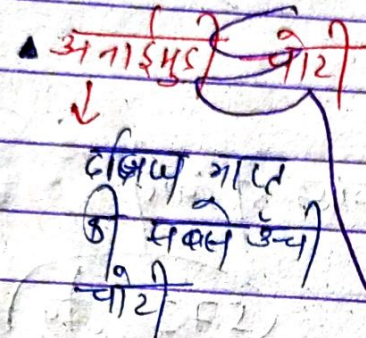 ▲ अनाईमुडी चोटी
↓
दक्षिण भारत
की सबसे ऊँची
चोटी